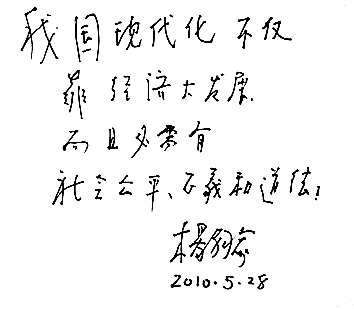 我国现代化不仅
靠经济大发展
而且必需有
社会公平、正义和道德！
杨
2010.5.28